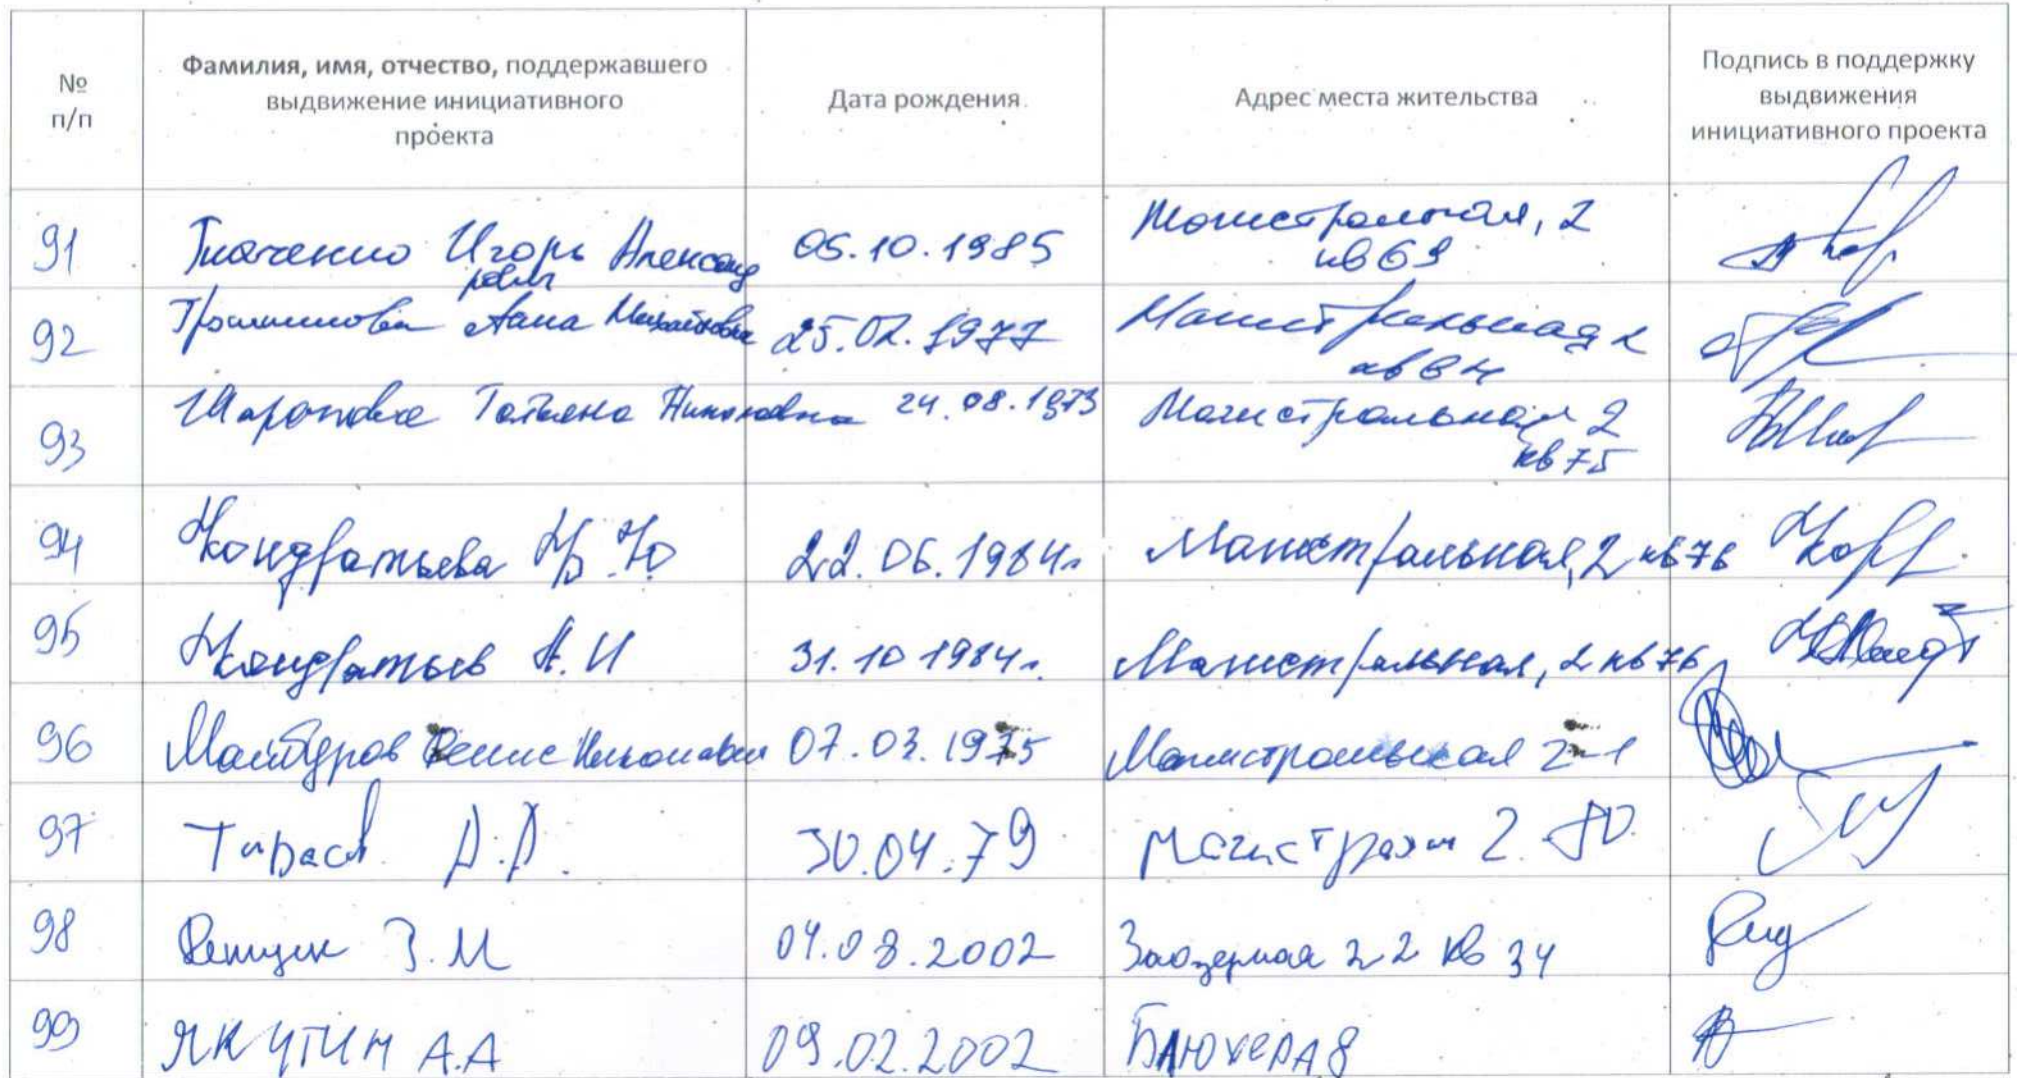 № п/п
Фамилия, имя, отчество, поддержавшего
выдвижение инициативного
проекта
Дата рождения
Адрес места жительства
Подпись в поддержку
выдвижения
инициативного проекта
91 Ткаченко Игорь Александ 05.10.1985 Магистральная, 2
рович кв 69
92 Анна Михайловна 25.02.1977 Магистральная 2
кв 84
93 Шаронова Татьяна 24.08.1973 Магистральная 2
кв 75
94 Кондратьева Ю 22.06.1984г Магистральная, 2 кв 76
95 Кондратьев А.И 31.10 1984г. Магистральная, 2 кв 76
96 Денис 07.03.1975 Магистральская 2-1
97 Тарасов 30.04.79 2.
98 З.М 04.08.2002 Заозерная 22 кв 34
99 ЯКУТИН А.А 09.02.2002 БЛЮХЕРА 8